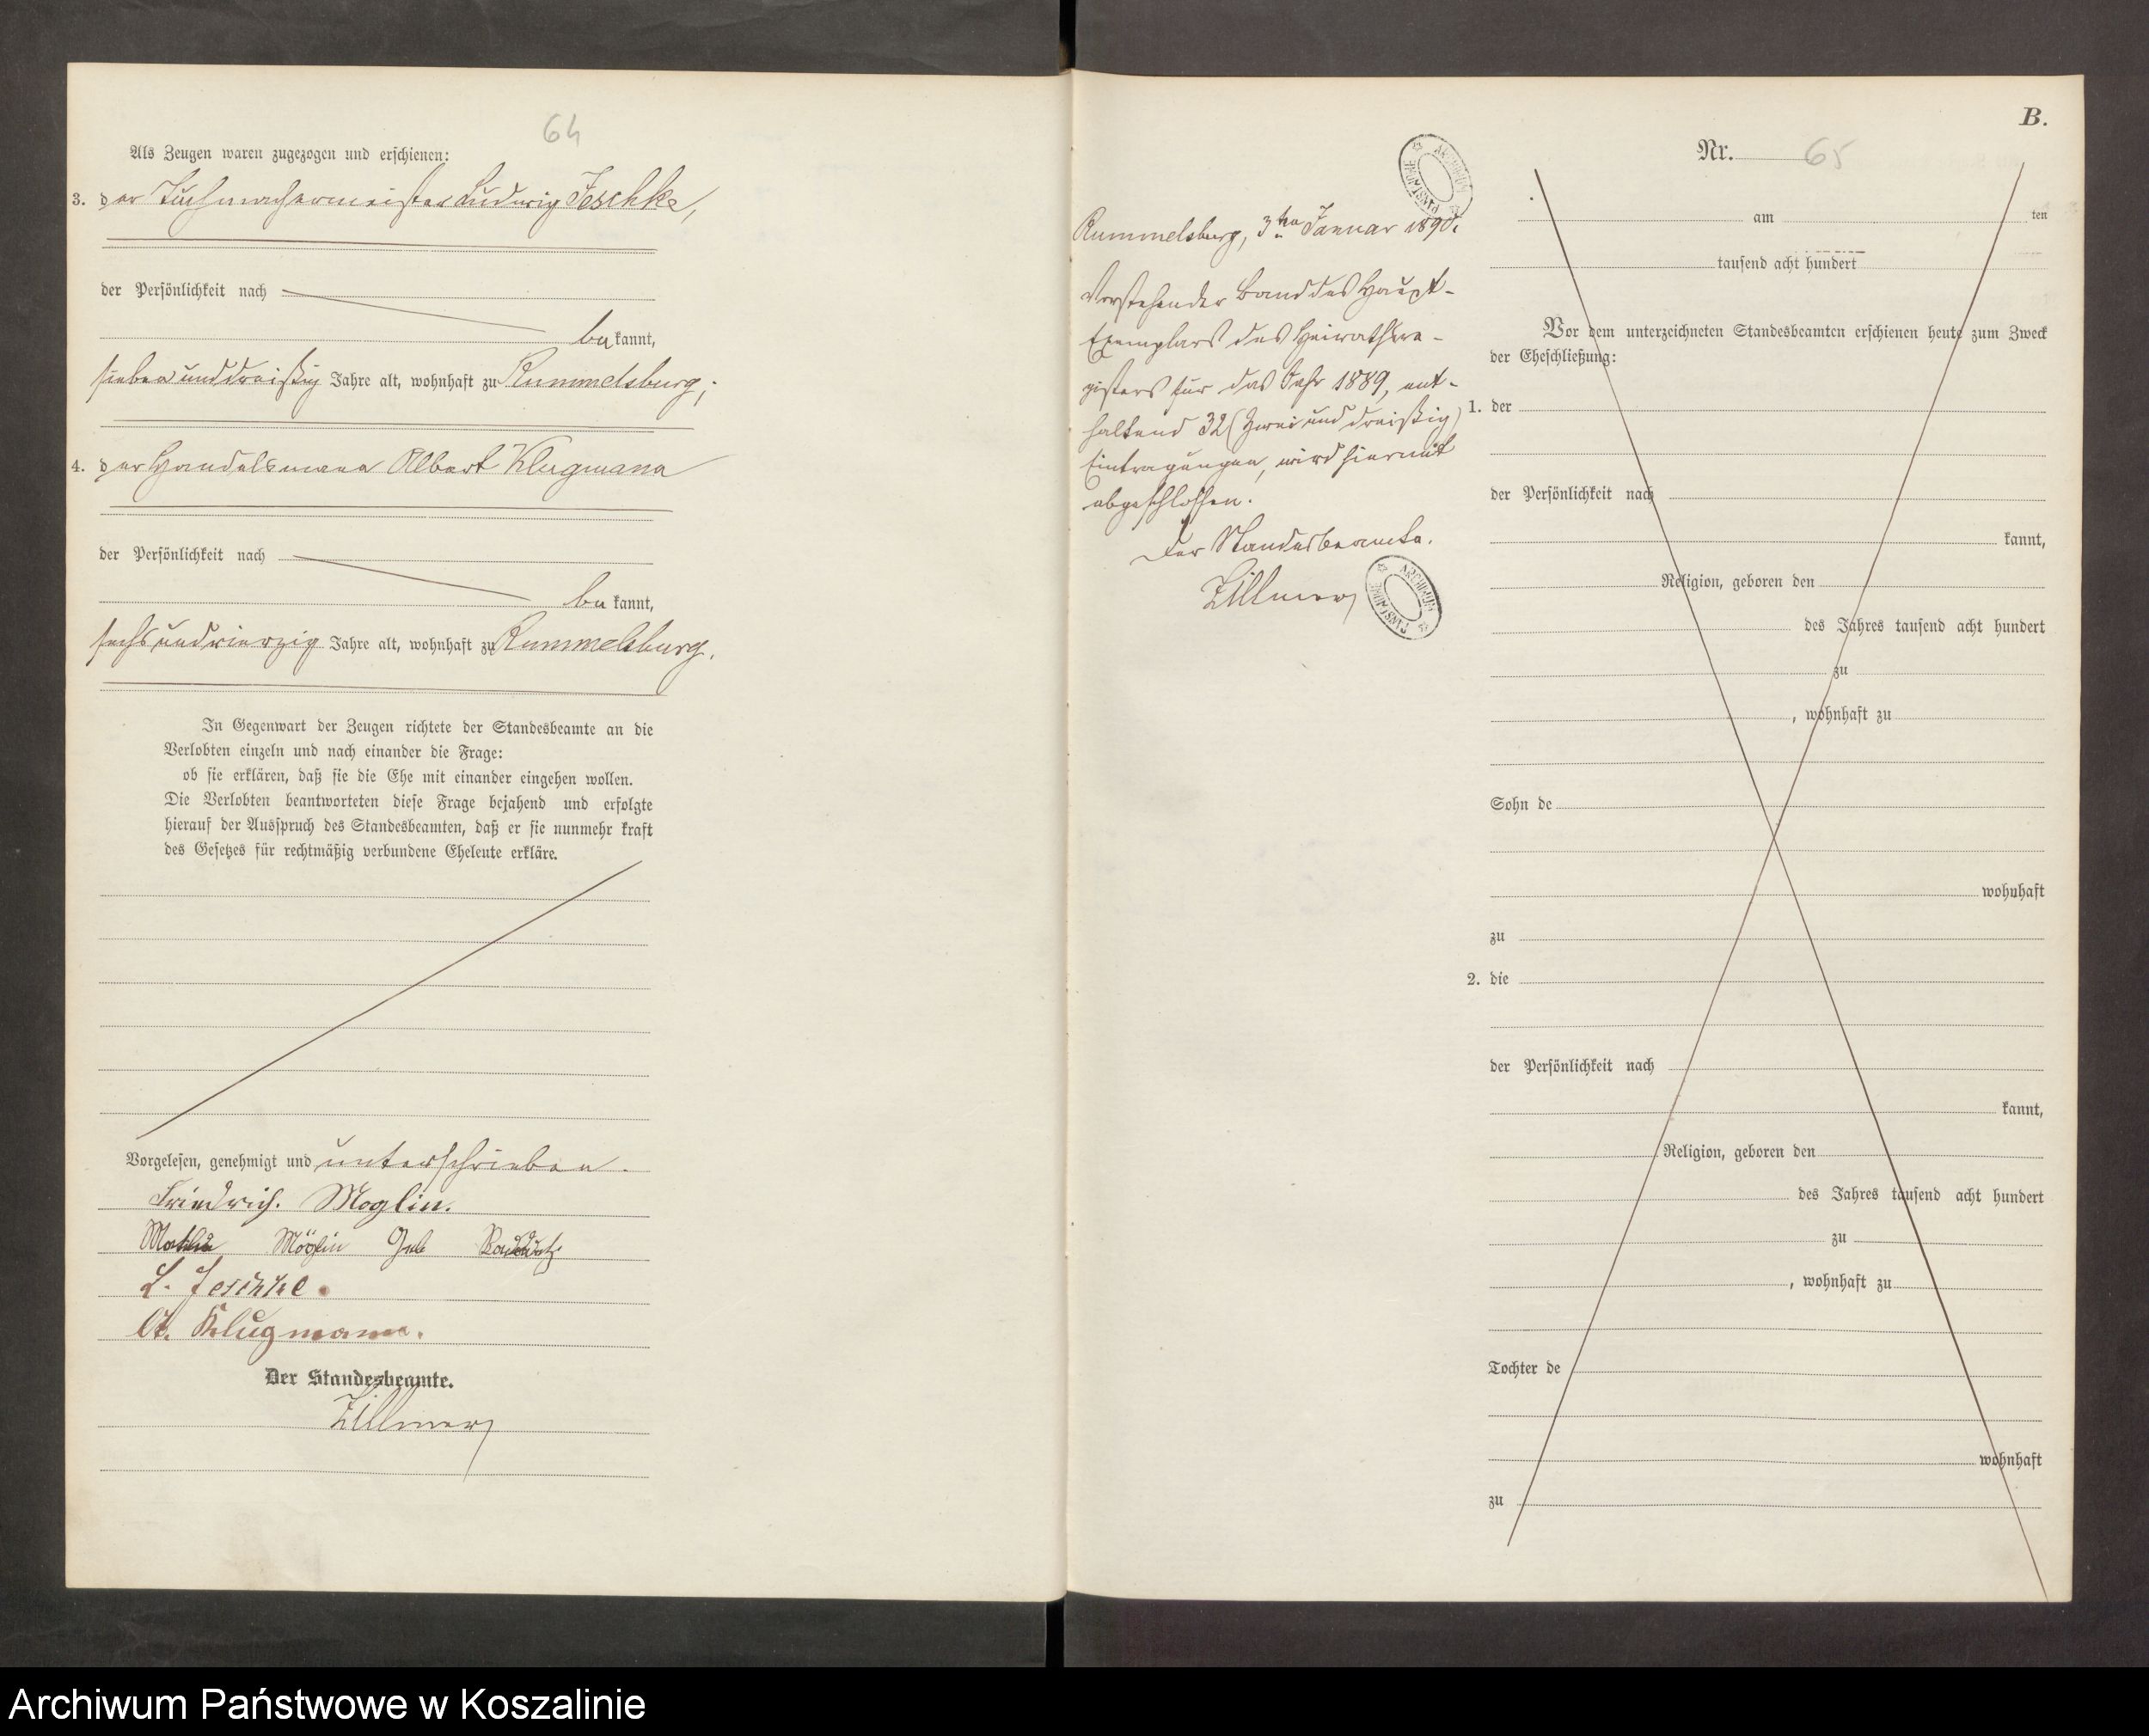 64
Als Zeugen waren zugezogen und erschienen:
3. der Tuchmachermeister Ludwig Jeschke,
der Persönlichkeit nach
be kannt,
sieben und dreißig Jahre alt, wohnhaft zu Rummelsburg;
4. der Handelsmann Albert Klugmann
der Persönlichkeit nach
be kannt,
sechs und vierzig Jahre alt, wohnhaft zu Rummelsburg.
In Gegenwart der Zeugen richtete der Standesbeamte an die
Verlobten einzeln und nach einander die Frage:
ob sie erklären, daß sie die Ehe mit einander eingehen wollen.
Die Verlobten beantworteten diese Frage bejahend und erfolgte
hierauf der Ausspruch des Standesbeamten, daß er sie nunmehr kraft
des Gesetzes für rechtmäßig verbundene Eheleute erkläre.
Vorgelesen, genehmigt und unterschrieben.
Friedrich. Moglin.
Möglin Geb
L. Jeschke.
A. Klugmann.
Der Standesbeamte.
Zillmer
Rummelsburg, 3ten Januar 1890.
Vorstehender Band des Haupt-
Exemplars des Heirathsre-
gisters für das Jahr 1889, ent-
haltend 32 (zwei und dreißig)
Eintragungen, wird hiermit
abgeschlossen.
Der Standesbeamte.
Zillmer
ARCHIWUM PAŃSTWOWE
ARCHIWUM PAŃSTWOWE
B.
Nr. 65
am ten
tausend acht hundert
Vor dem unterzeichneten Standesbeamten erschienen heute zum Zweck
der Eheschließung:
1. der
der Persönlichkeit nach
kannt,
Religion, geboren den
des Jahres tausend acht hundert
zu
, wohnhaft zu
Sohn de
wohnhaft
zu
2. die
der Persönlichkeit nach
kannt,
Religion, geboren den
des Jahres tausend acht hundert
zu
, wohnhaft zu
Tochter de
wohnhaft
zu
Archiwum Państwowe w Koszalinie